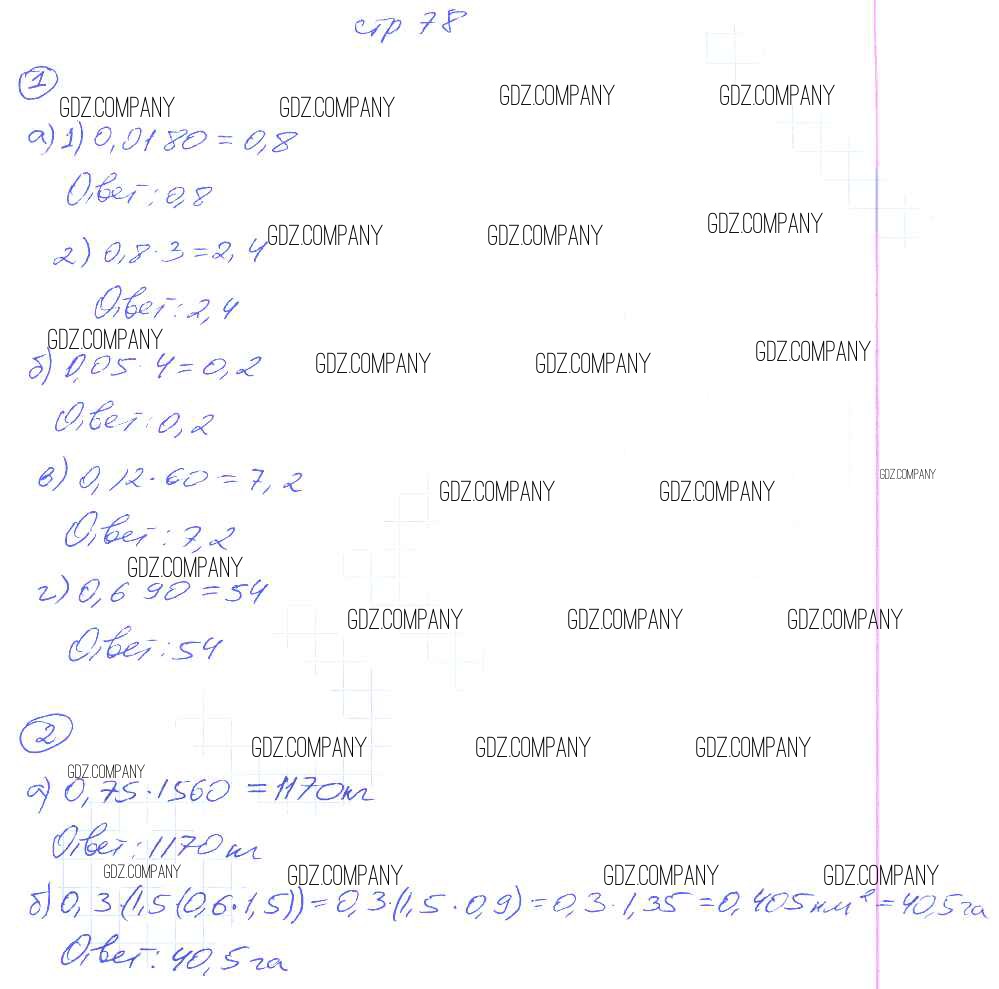 стр 78
1
GDZ.COMPANY GDZ.COMPANY GDZ.COMPANY GDZ.COMPANY
а) 1) 0,0180 = 0,8
Ответ: 0,8
GDZ.COMPANY GDZ.COMPANY GDZ.COMPANY
2) 0,8·3 = 2,4
Ответ: 2,4
GDZ.COMPANY GDZ.COMPANY GDZ.COMPANY GDZ.COMPANY
б) 0,05·4 = 0,2
Ответ: 0,2
GDZ.COMPANY GDZ.COMPANY GDZ.COMPANY
в) 0,12·60 = 7,2
Ответ: 7,2
GDZ.COMPANY
г) 0,6 90 = 54
GDZ.COMPANY GDZ.COMPANY GDZ.COMPANY
Ответ: 54
2
GDZ.COMPANY GDZ.COMPANY GDZ.COMPANY GDZ.COMPANY
а) 0,75·1560 = 1170кг
Ответ: 1170кг
GDZ.COMPANY GDZ.COMPANY GDZ.COMPANY GDZ.COMPANY
б) 0,3·(1,5(0,6·1,5)) = 0,3·(1,5·0,9) = 0,3·1,35 = 0,405км² = 40,5га
Ответ: 40,5га